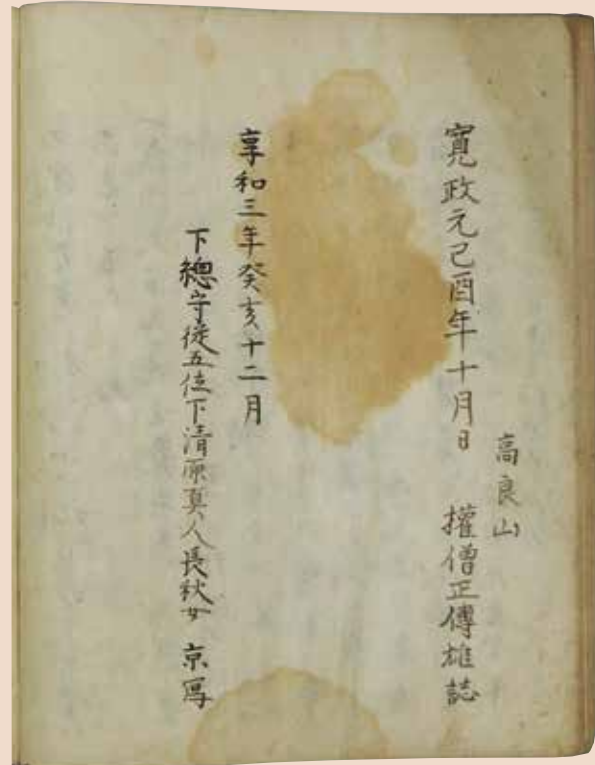 寛政元己酉年十月日
高良山
權僧正傳雄誌
享和三年癸亥十二月
下總守從五位下清原真人長秋女 京写